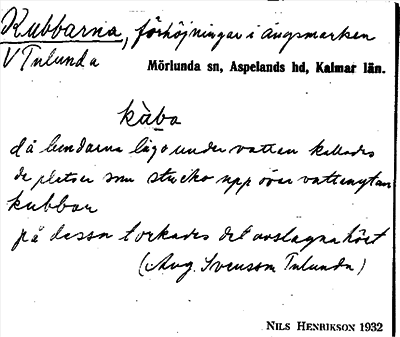 Kubbarna, förhöjningar i ängsmarken
V Tulunda
Mörlunda sn, Aspelands hd, Kalmar län.
kàba
då lundarna lågo under vatten kallades
de platser som stucko upp över vattenytan
kubbar
på dessa torkades det avslagna höet
(Aug. Svensson Tulunda)
NILS HENRIKSON 1932